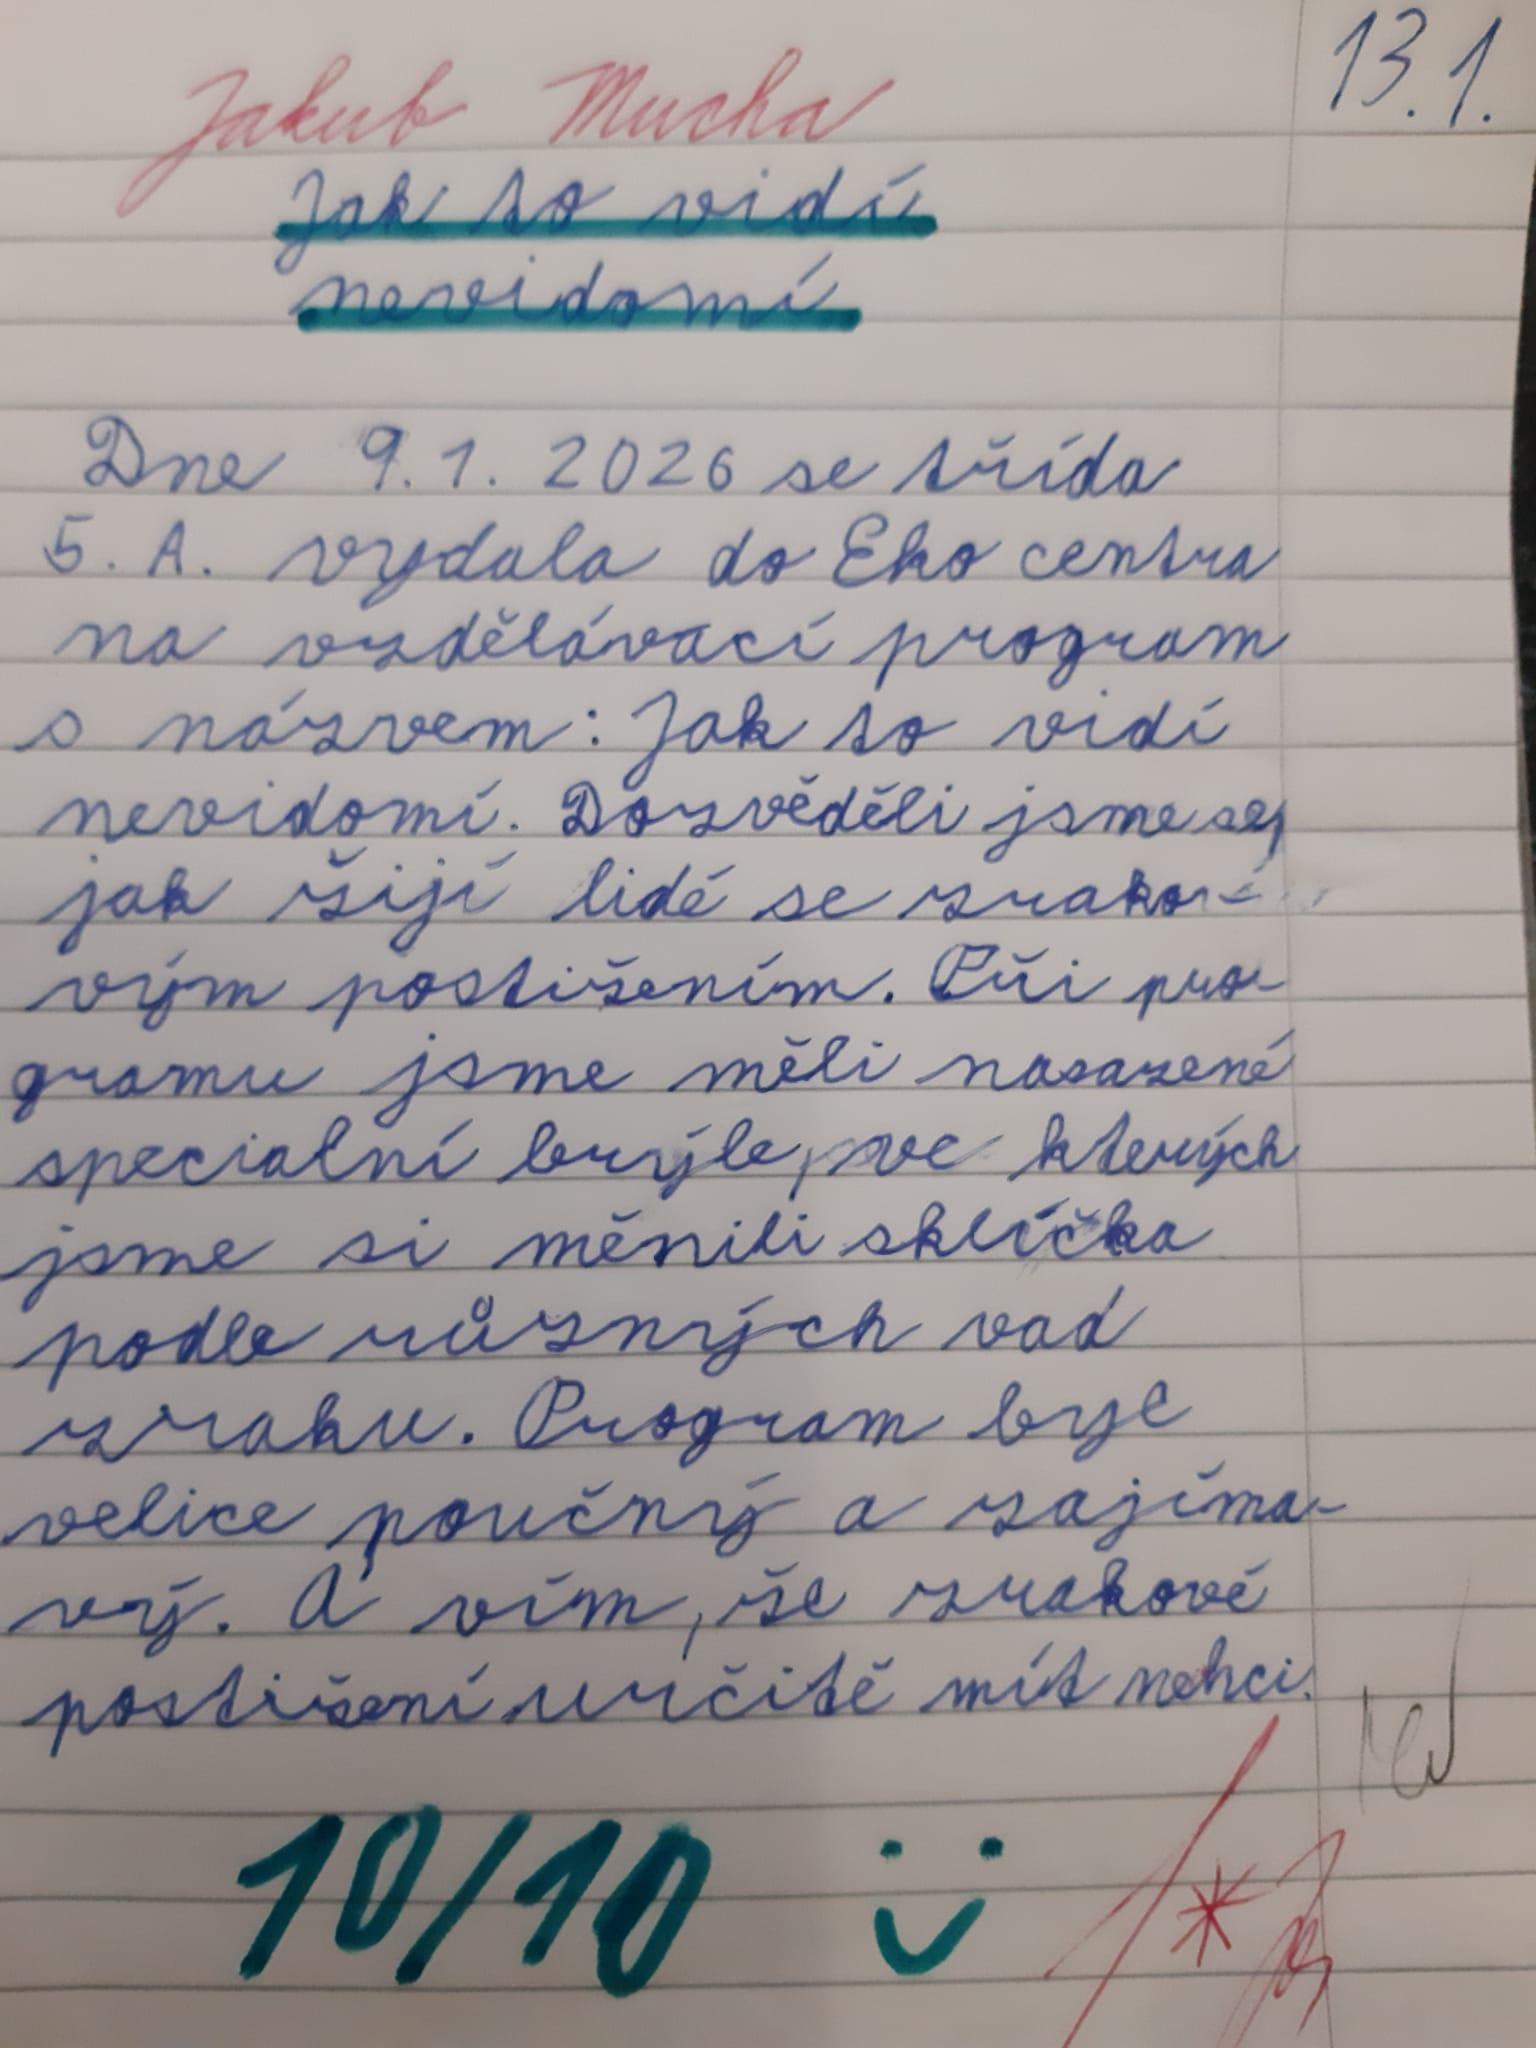 13.1.
Jakub Mucha
Jak to vidí
nevidomí
Dne 9.1. 2026 se třída
5. A. vydala do Eko centra
na vzdělávací program
s názvem: Jak to vidí
nevidomí. Dozvěděli jsme se,
jak žijí lidé se zrako-
vým postižením. Při pro-
gramu jsme měli nasazené
specialní brýle, ve kterých
jsme si měnili sklíčka
podle různých vad
zraku. Program byl
velice poučný a zajíma-
vý. A vím, že zrakové
postižení určitě mít nehci.
10/10
1*